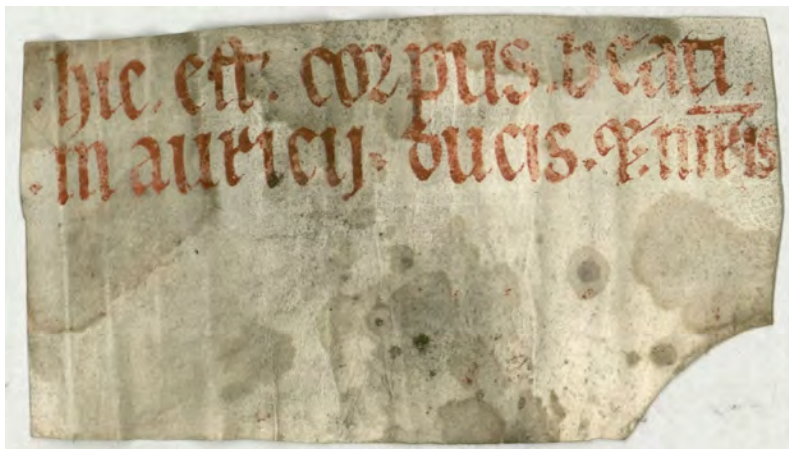 ·hic·est·corpus·beati·
·mauricij·ducis·&·mr̅is